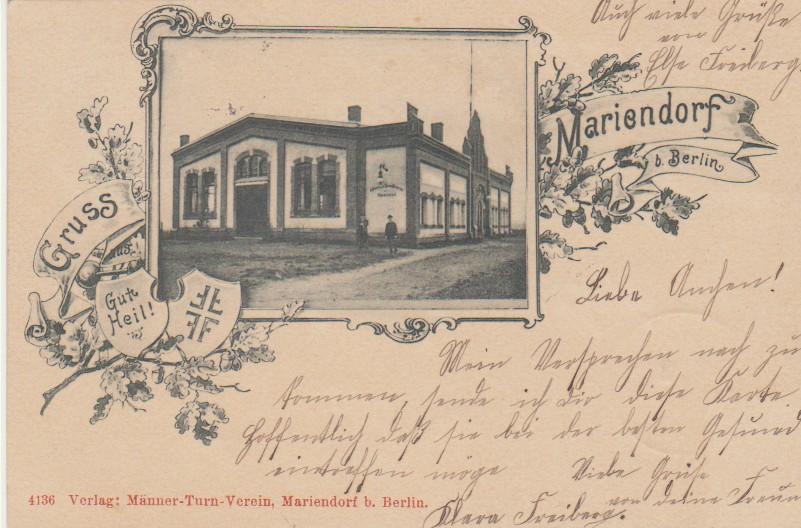 Auch viele Grüße
von
Else Freiberg
Mariendorf
b. Berlin
Gruss
aus
Gut
Heil!
Liebe Anchen!
Mein Versprechen nach zu
kommen, sende ich dir diese Karte
Hoffentlich daß sie bei der besten Gesund
eintreffen möge Viele Grüße
von deine Freun
Klara Freiberg.
4136 Verlag: Männer-Turn-Verein, Mariendorf b. Berlin.